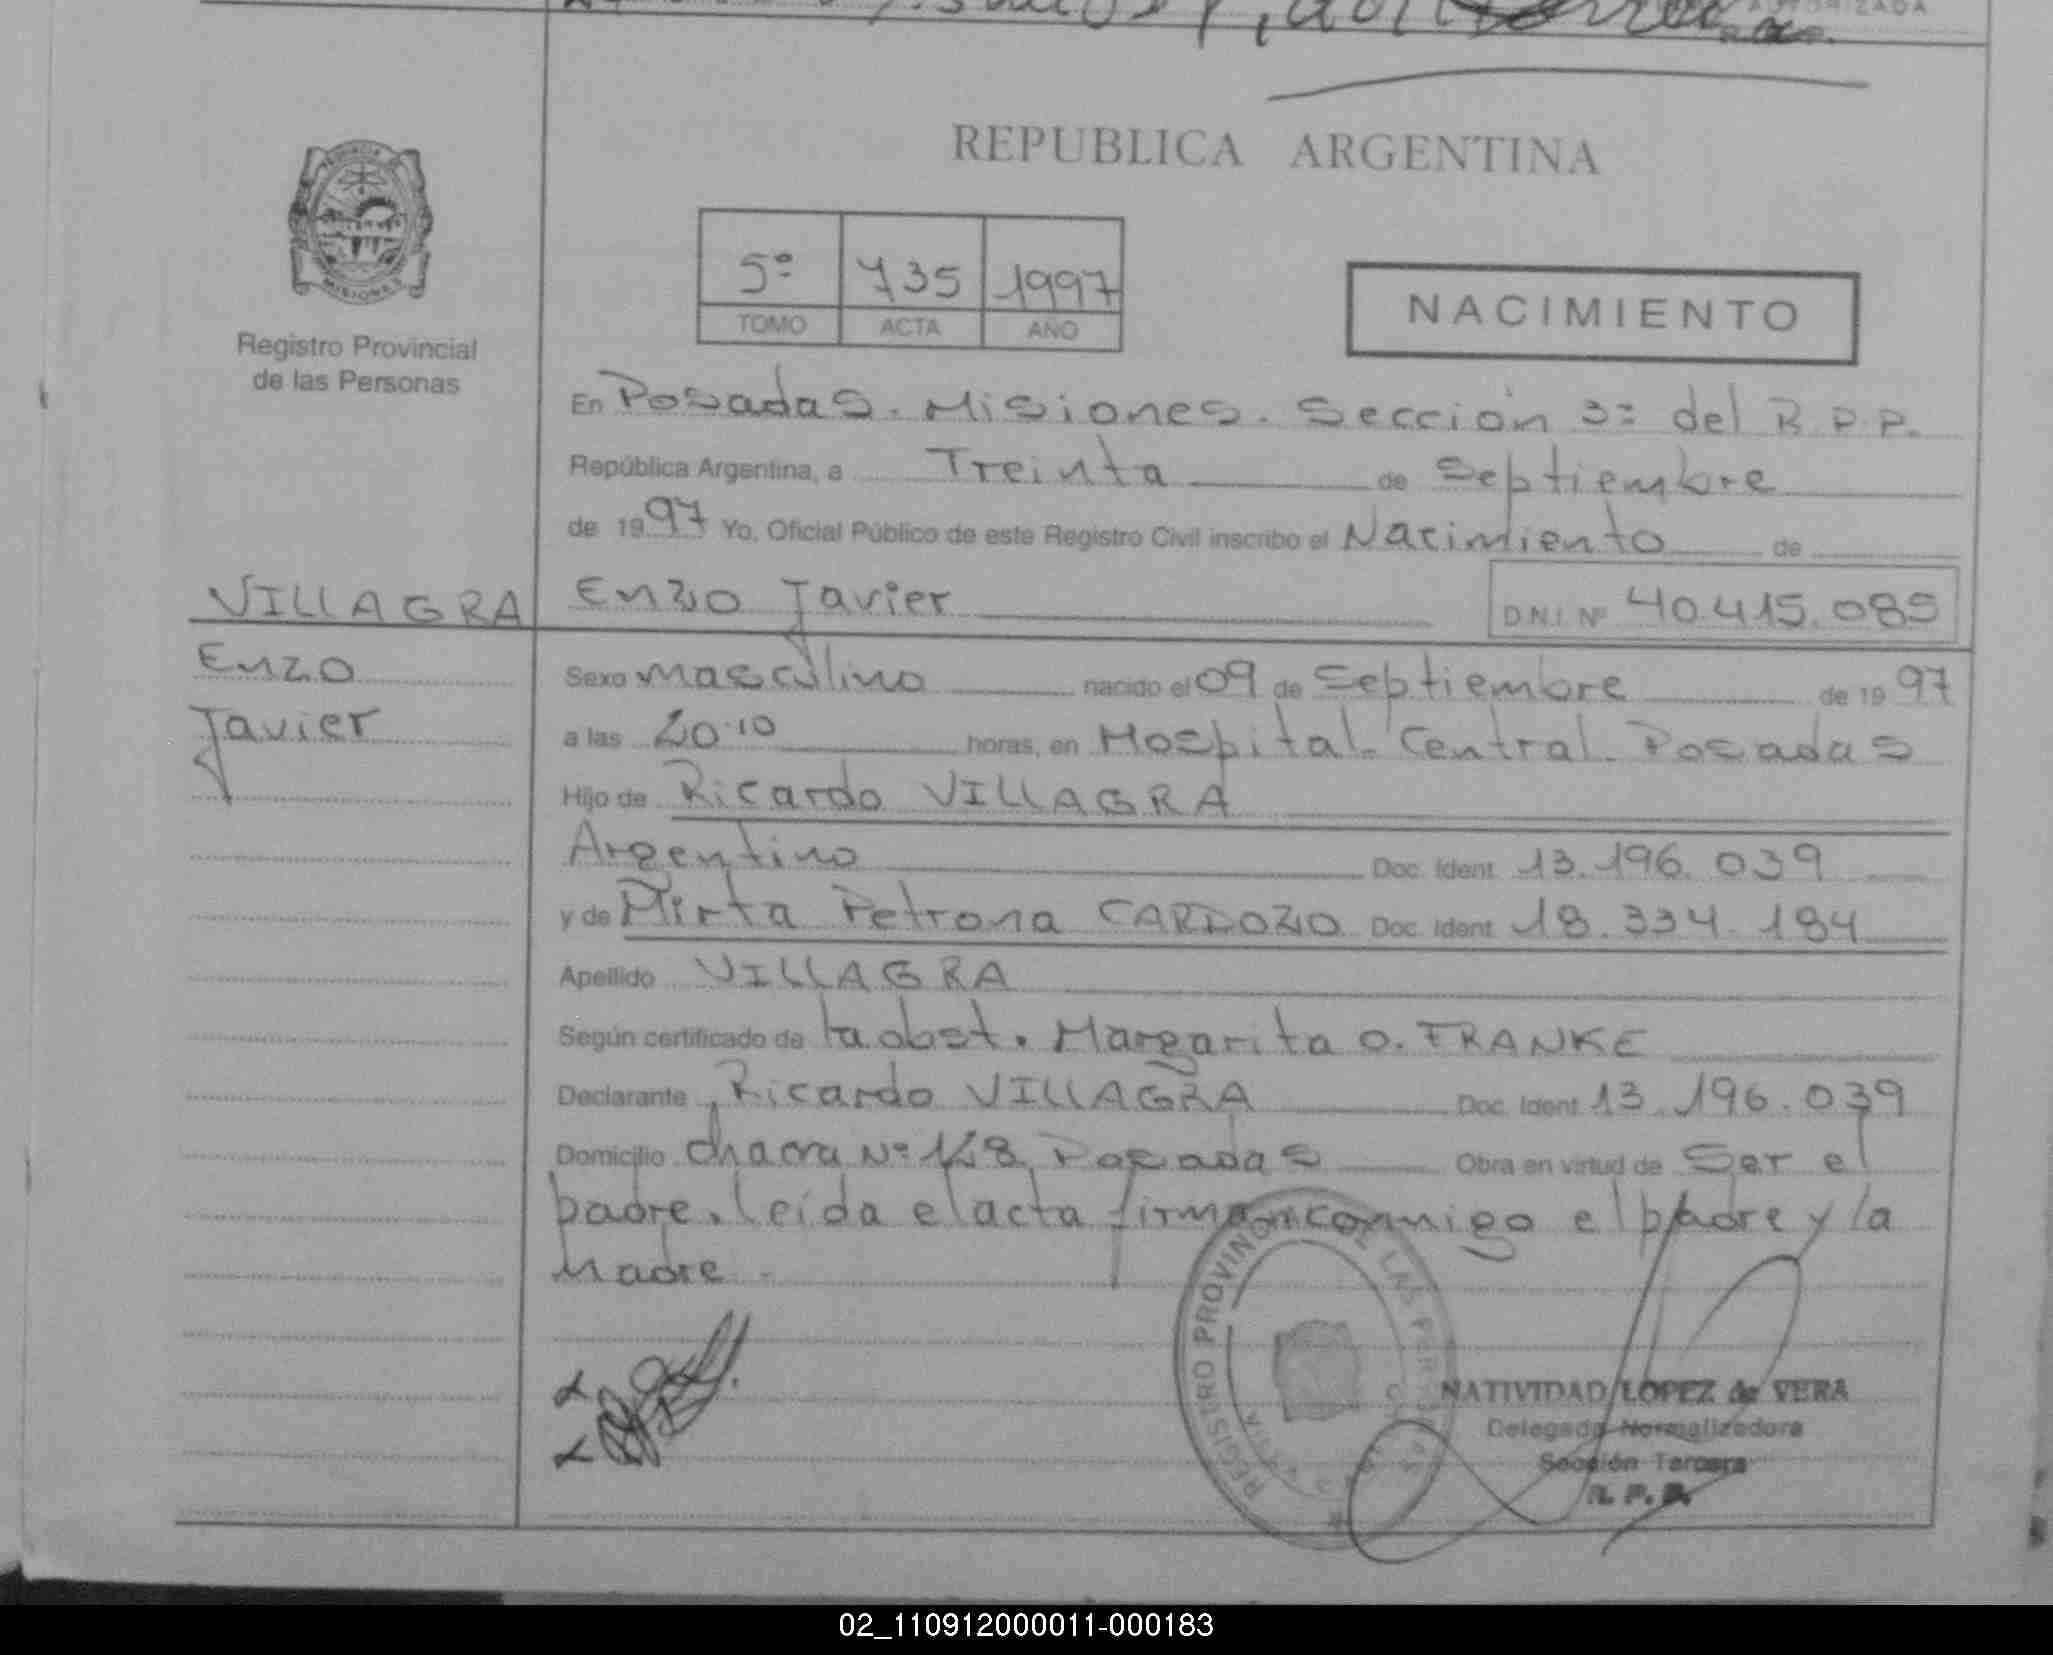 AUTORIZADA
REPUBLICA ARGENTINA
PROVINCIA DE
MISIONES
Registro Provincial
de las Personas
5º 735 1997
TOMO ACTA AÑO
NACIMIENTO
En Posadas. Misiones. Sección 3º del R.P.P.
República Argentina, a Treinta de Septiembre
de 1997 Yo, Oficial Público de este Registro Civil inscribo el Nacimiento de
VILLAGRA Enzo Javier D.N.I. Nº 40.415.085
Enzo
Javier
Sexo masculino nacido el 09 de Septiembre de 1997
a las 20.10 horas, en Hospital Central. Posadas
Hijo de Ricardo VILLAGRA
Argentino Doc. Ident. 13.196.039
y de Mirta Petrona CARDOZO Doc. Ident. 18.334.184
Apellido VILLAGRA
Según certificado de la obst. Margarita O. FRANKE
Declarante Ricardo VILLAGRA Doc. Ident. 13.196.039
Domicilio chacra Nº 128, Posadas Obra en virtud de Ser el
padre. leída el acta firman conmigo el padre y la
Madre.
REGISTRO PROVINCIAL DE LAS PERSONAS
NATIVIDAD LOPEZ de VERA
Delegada Normalizadora
Sección Tercera
R. P. P.
02_110912000011-000183